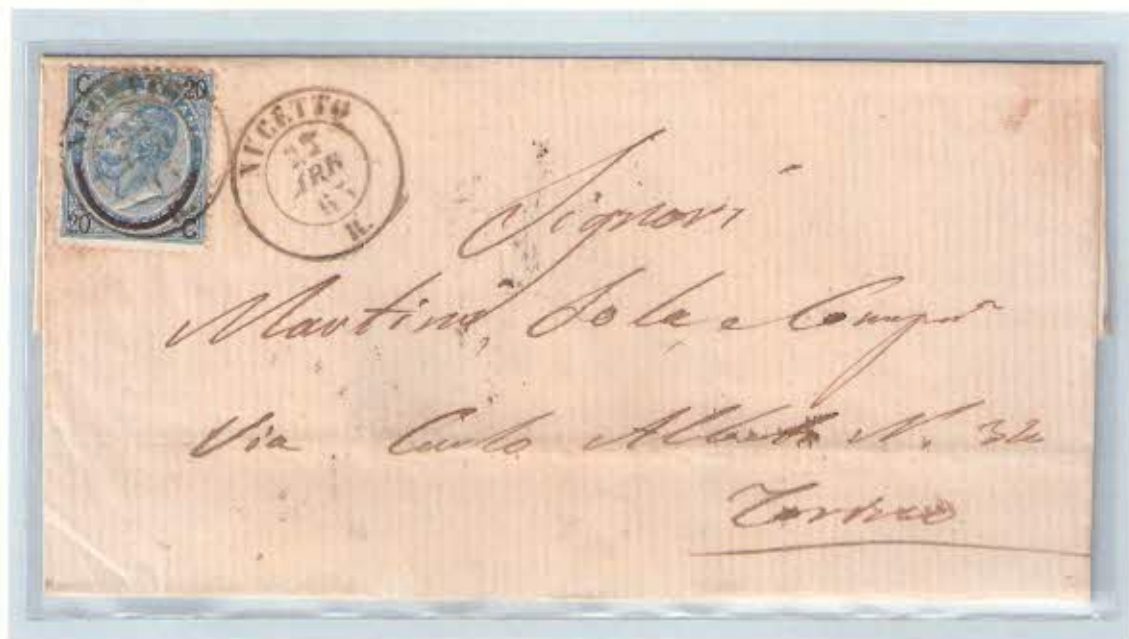 C 20
20 C
NUCETTO
27
APR
65
R.
Signori
Martini, Sola e Comp.ª
Via Carlo Alberto N. 34
Torino